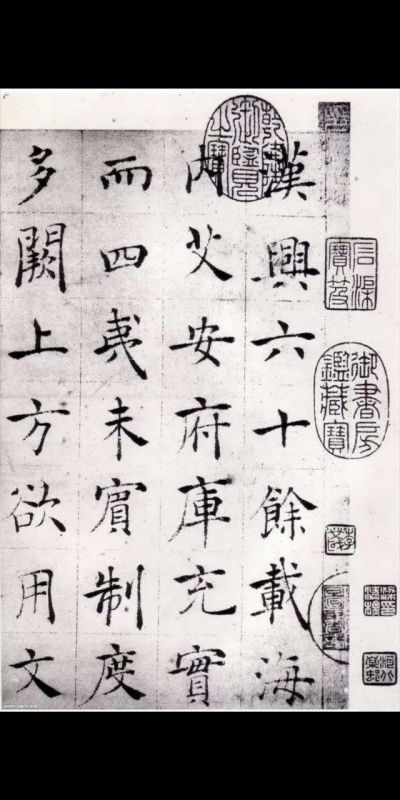 石渠
寶笈
御書房
鑑藏寶
乾隆
御覽
之寶
漢興六十餘載海
内艾安府庫充實
而四夷未賓制度
多闕上方欲用文